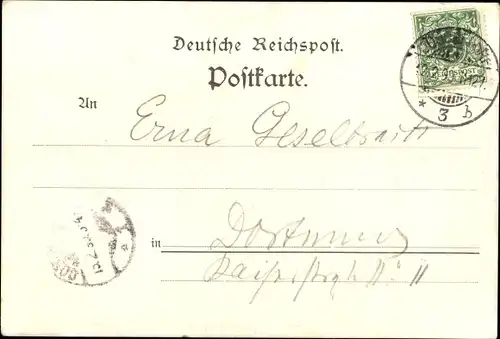 Deutsche Reichspost.
Postkarte.
An
Erna Geselbrach
in Dortmund
Kaiserstraße 11
* 3 b